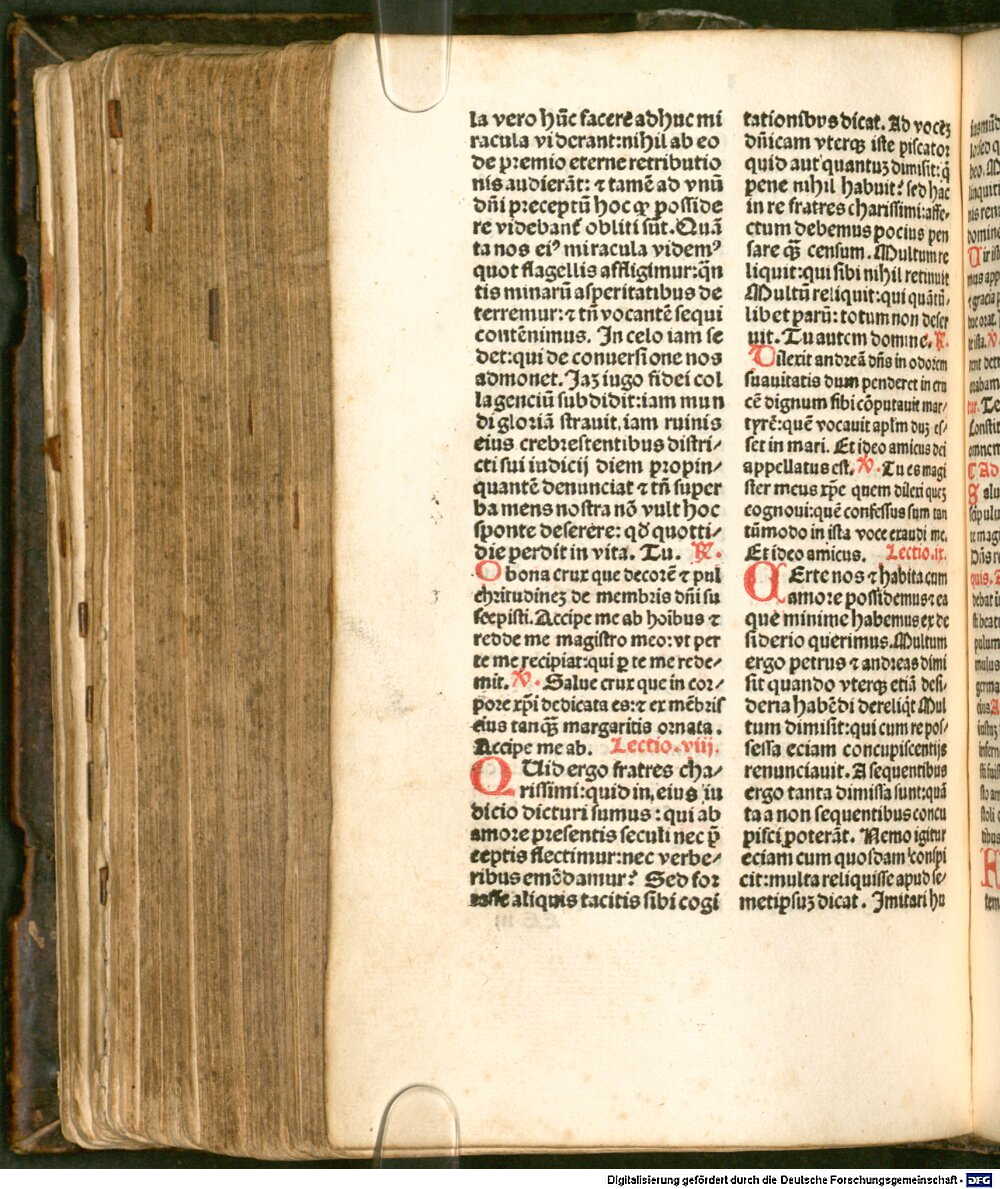 la vero hu̅c facere̅ adhuc mi
racula viderant:nihil ab eo
de premio eterne retributio
nis audiera̅t: ⁊ tame̅ ad vnu̅
dn̅i preceptu̅ hoc qꝫ posside
re videban̅t obliti su̅t. Qua̅
ta nos eiꝰ miracula videmꝰ
quot flagellis affligimur:qn̅
tis minaru̅ asperitatibus de
terremur:⁊ tn̅ vocante̅ sequi
conte̅nimus. In celo iam se
det:qui de conuersione nos
admonet. Jaꝫ iugo fidei col
la genciu̅ subdidit:iam mun
di gloria̅ strauit, iam ruinis
eius crebrestentibus distri/
cti sui iudicij diem propin/
quante̅ denunciat ⁊ tn̅ super
ba mens nostra no̅ vult hoc
sponte deserere: qd̅ quotti/
die perdit in vita. Tu. ℟.
O bona crux que decore̅ ⁊ pul
chritudineꝫ de membris dn̅i su
scepisti. Accipe me ab ho̅ibus ⁊
redde me magistro meo:vt per
te me recipiat:qui ꝑ te me rede/
mit. ℣. Salue crux que in cor/
pore xp̅i dedicata es:⁊ ex me̅bris
eius tanqꝫ̅ margaritis ornata.
Accipe me ab. Lectio.viij.
QUid ergo fratres cha/
rissimi:quid in, eius iu
dicio dicturi sumus : qui ab
amore presentis seculi nec p̅
ceptis flectimur:nec verbe/
ribus eme̅damur? Sed for
tasse aliquis tacitis sibi cogi
tationibvs dicat. Ad voceꝫ
dn̅icam vterqꝫ iste piscator
quid aut quantuꝫ dimisit:q̅
pene nihil habuit? sed hac
in re fratres charissimi:affe/
ctum debemus pocius pen
sare qꝫ̅ censum. Multum re
liquit:qui sibi nihil retinuit
Multu̅ reliquit:qui quantu̅/
libet paru̅: totum non deser
uit. Tu autem domine. ℟.
Dilexit andrea̅ dn̅s in odorem
suauitatis dum penderet in cru
ce̅ dignum sibi co̅putauit mar/
tyre̅:que̅ vocauit apl̅m duꝫ es/
set in mari. Et ideo amicus dei
appellatus est. ℣. Tu es magi
ster meus xp̅e quem dilexi queꝫ
cognoui:que̅ confessus sum tan
tu̅modo in ista voce exaudi me.
Et ideo amicus. Lectio.ix.
CErte nos ⁊ habita cum
amore possidemus:⁊ ea
que̅ minime habemus ex de
siderio querimus. Multum
ergo petrus ⁊ andreas dimi
sit quando vterqꝫ etia̅ desi/
deria habe̅di dereliqt̅ Mul
tum dimisit:qui cum re pos/
sessa eciam concupiscentijs
renunciauit. A sequentibus
ergo tanta dimissa sunt:qua̅
ta a non sequentibus concu
pisci potera̅t. Nemo igitur
eciam cum quosdam conspi
cit:multa reliquisse apud se/
metipsuꝫ dicat. Imitari hu
Digitalisierung gefördert durch die Deutsche Forschungsgemeinschaft - DFG